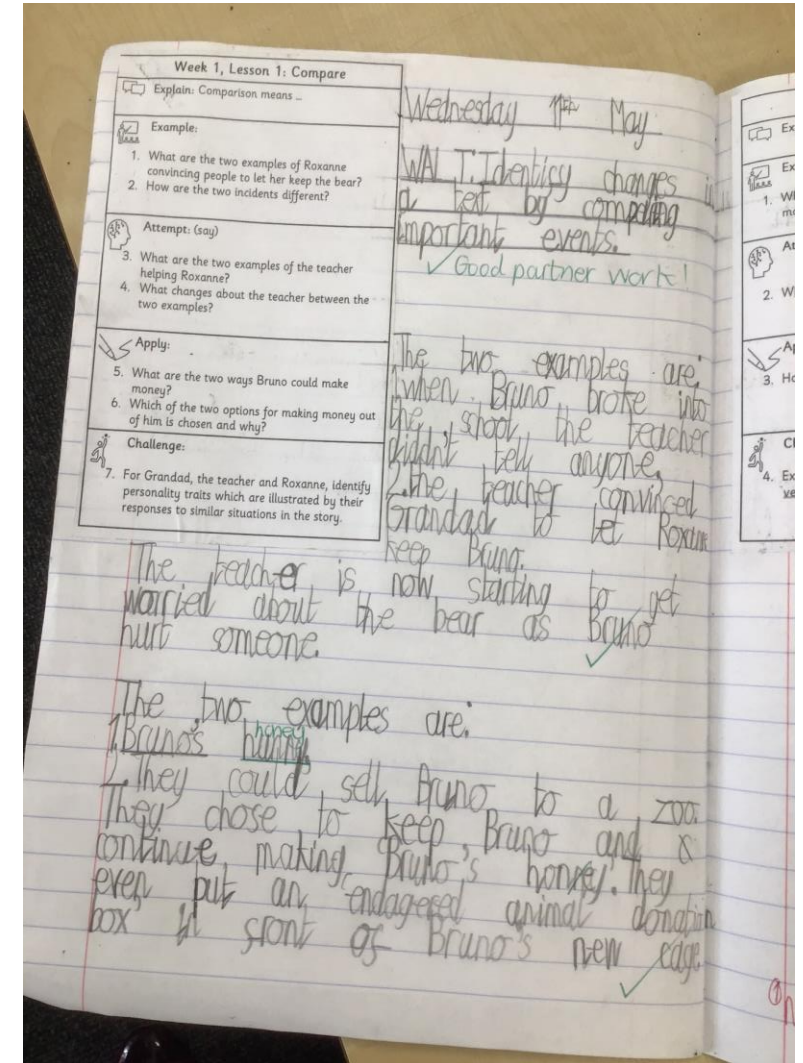 Week 1, Lesson 1: Compare
Explain: Comparison means ...
Example:
1. What are the two examples of Roxanne
convincing people to let her keep the bear?
2. How are the two incidents different?
Attempt: (say)
3. What are the two examples of the teacher
helping Roxanne?
4. What changes about the teacher between the
two examples?
Apply:
5. What are the two ways Bruno could make
money?
6. Which of the two options for making money out
of him is chosen and why?
Challenge:
7. For Grandad, the teacher and Roxanne, identify
personality traits which are illustrated by their
responses to similar situations in the story.
Wednesday 11th May
WAL T: Identify changes in
a text by comparing
important events.
✓ Good partner work!
The two examples are:
1. when Bruno broke into
the school, the teacher
diddn't tell anyone.
2. the teacher convinced
Grandad to let Roxanne
keep Bruno.
The teacher is now starting to get
worried about the bear as Bruno
hurt someone.
The two examples are:
honey
1. Bruno's
2. They could sell Bruno to a zoo.
They chose to keep Bruno and
continue making Bruno's honey. They
even put an endagered animal donation
box in front of Bruno's new cage.
Ex
Ex
1. Wh
At
2. W
Ap
3. Ho
Cl
4. Ex
ve